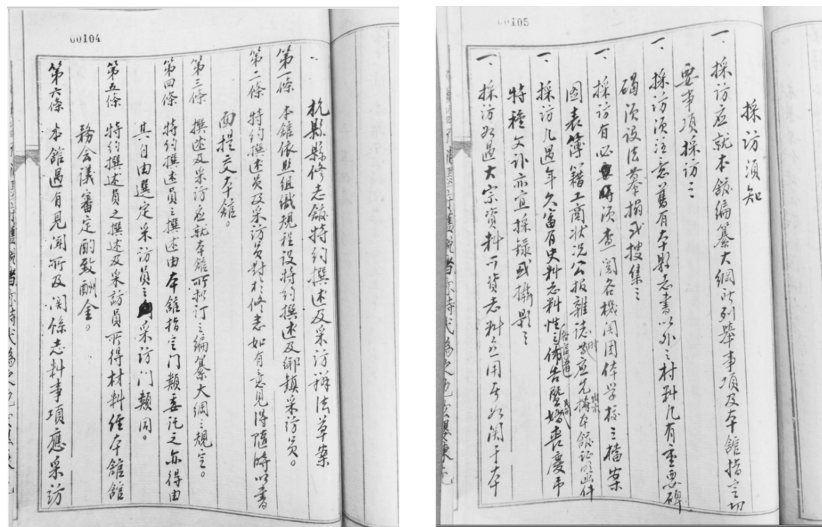 00104
杭縣縣修志館特約撰述及采訪辦法草案
第一條 本館依照組織規程設特約撰述及鄉鎮采訪員。
第二條 特約撰述員及采訪員對於修志如有意見得隨時以書
面提交本館。
第三條 撰述及采訪應就本館所擬訂之編纂大綱之規定。
第四條 特約撰述員之撰述由本館指定门類委託之亦得由
其自由選定采訪員之采訪门類同。
第五條 特約撰述員之撰述及采訪員所得材料經本館館
務会議審定酌致酬金。
第六條 本館遇有見聞所及関係志料事項應采訪
00105
採訪須知
一、採訪應就本館編纂大綱所列舉事項及本館指定切
要事項採訪之
一、採訪須注意舊有本縣志書以外之材料凡有重要碑
碣須設法摹搨或搜集之
一、採訪有必要時須查閱各機関団体学校之檔案
図表簿籍工商狀况公报雜誌時應先携本館证明文件
一、採訪凡遇年久富有史料志料性之佈告暨婚喪慶弔
特種文訃亦宜採錄或攝影之
一、採訪如遇大宗資料可資志料之用者如関于本